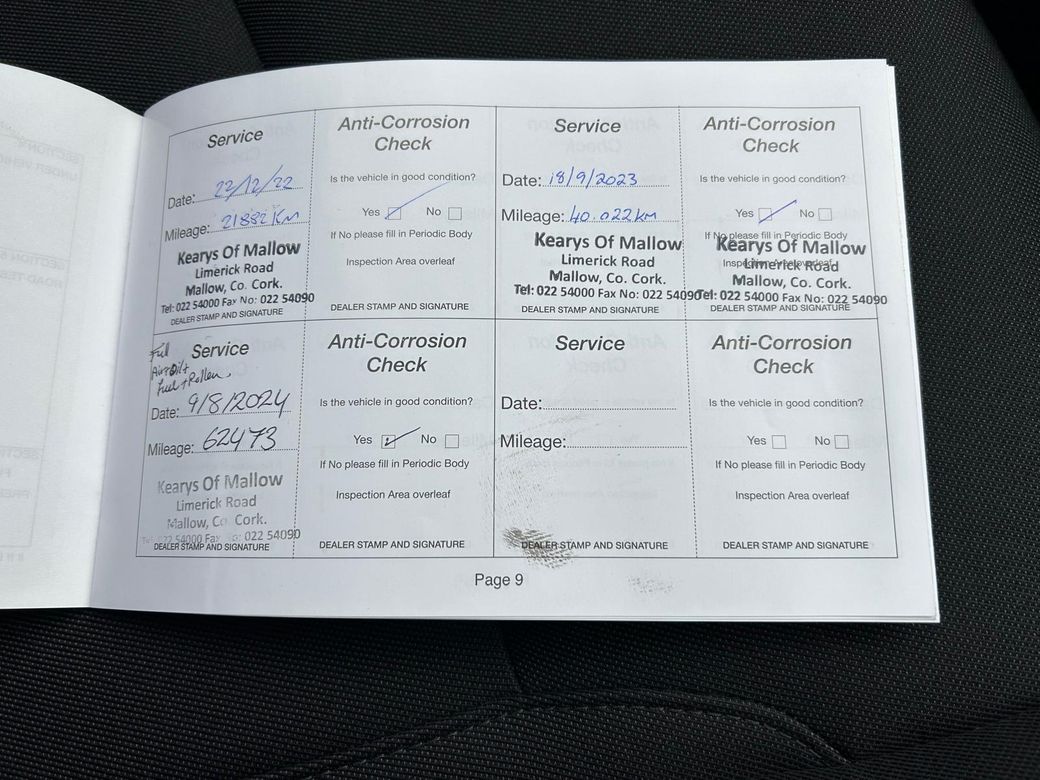 Service
Date: 22/12/22
Mileage: 21882 KM
Kearys Of Mallow
Limerick Road
Mallow, Co. Cork.
Tel: 022 54000 Fax No: 022 54090
DEALER STAMP AND SIGNATURE
Anti-Corrosion
Check
Is the vehicle in good condition?
Yes No
If No please fill in Periodic Body
Inspection Area overleaf
DEALER STAMP AND SIGNATURE
Service
Date: 18/9/2023
Mileage: 40.022KM
Kearys Of Mallow
Limerick Road
Mallow, Co. Cork.
Tel: 022 54000 Fax No: 022 54090
DEALER STAMP AND SIGNATURE
Anti-Corrosion
Check
Is the vehicle in good condition?
Yes No
If No please fill in Periodic Body
Kearys Of Mallow
Inspection Area overleaf
Limerick Road
Mallow, Co. Cork.
Tel: 022 54000 Fax No: 022 54090
DEALER STAMP AND SIGNATURE
Service
Air+Oil+
Fuel+Pollen.
Date: 9/8/2024
Mileage: 62473
Kearys Of Mallow
Limerick Road
Mallow, Co. Cork.
022 54000 Fax 022 54090
DEALER STAMP AND SIGNATURE
Anti-Corrosion
Check
Is the vehicle in good condition?
Yes No
If No please fill in Periodic Body
Inspection Area overleaf
DEALER STAMP AND SIGNATURE
Service
Date:
Mileage:
DEALER STAMP AND SIGNATURE
Anti-Corrosion
Check
Is the vehicle in good condition?
Yes No
If No please fill in Periodic Body
Inspection Area overleaf
DEALER STAMP AND SIGNATURE
Page 9